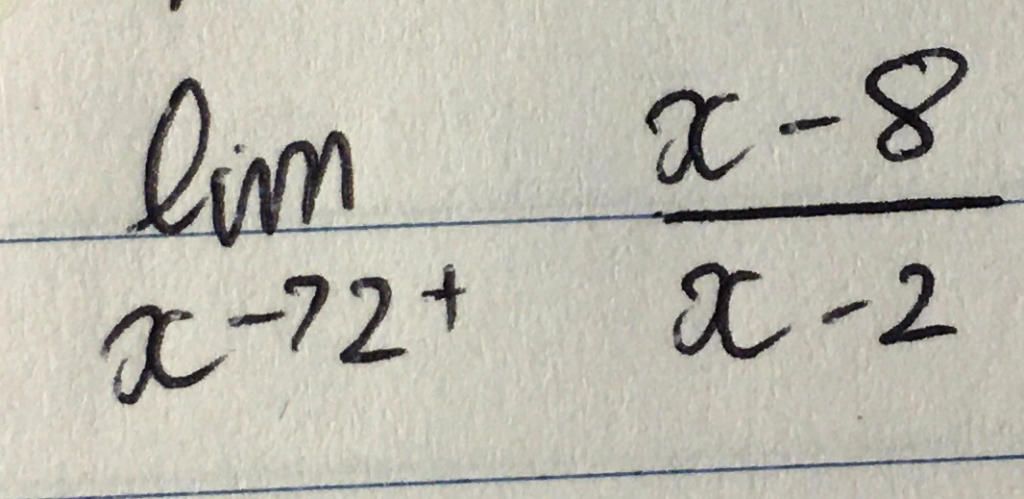 lim x→2+ x-8 / x-2